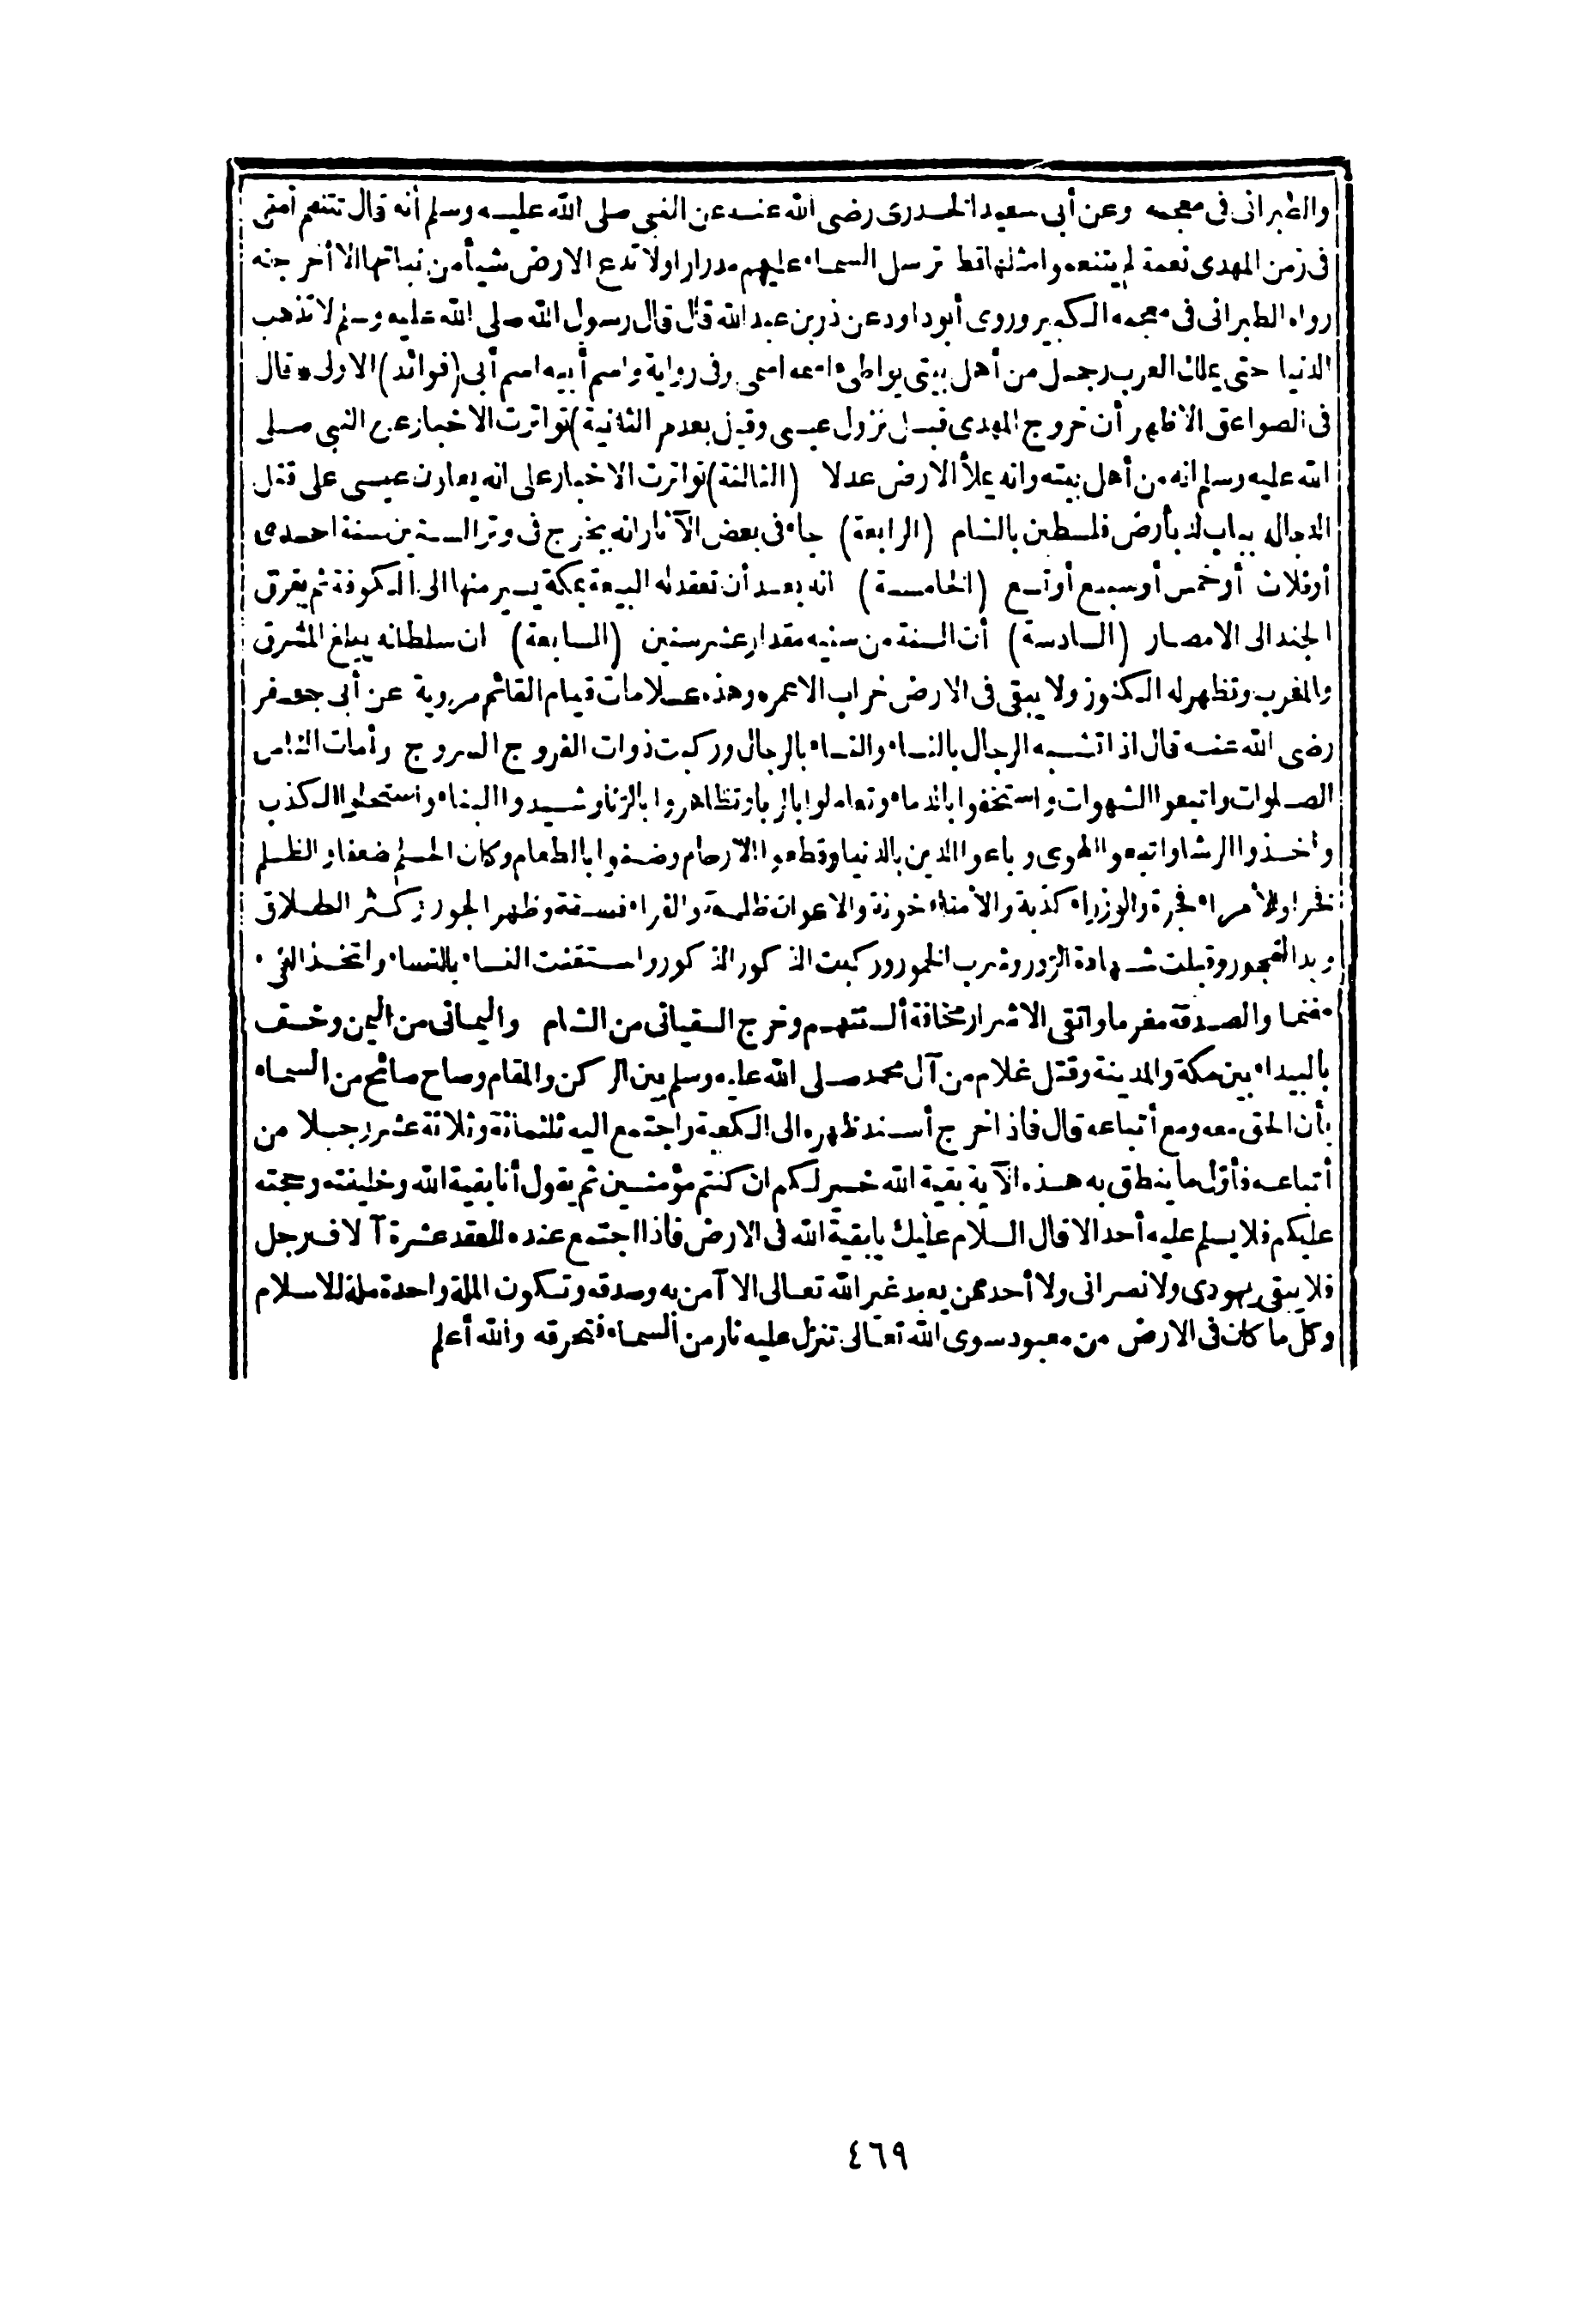 والطبرانى فى معجمه وعن أبى سعيد الخدرى رضى الله عنه عن النبى صلى الله عليه وسلم أنه قال تتنعم أمتى
فى زمن المهدى نعمة لم يتنعموا مثلها قط ترسل السماء عليهم مدرارا ولا تدع الارض شيأ من نباتها الا أخرجته
رواه الطبرانى فى معجمه الكبير وروى أبوداود عن زر بن عبدالله قال قال رسول الله صلى الله عليه وسلم لا تذهب
الدنيا حتى يملك العرب رجل من أهل بيتى يواطئ اسمه اسمى وفى رواية واسم أبيه اسم أبى (فوائد) الاولى * قال
فى الصواعق الاظهر أن خروج المهدى قبل نزول عيسى وقيل بعده (الثانية) تواترت الاخبار عن النبى صلى
الله عليه وسلم انه من أهل بيته وانه يملأ الارض عدلا (الثالثة) تواترت الاخبار على انه يعاون عيسى على قتل
الدجال بباب لد بأرض فلسطين بالشام (الرابعة) جاء فى بعض الآثار انه يخرج فى وتر السنين سنة احدى
أو ثلاث أو خمس أو سبع أو تسع (الخامسة) انه بعد أن تعقد له البيعة بمكة يسير منها الى الكوفة ثم يفرق
الجند الى الامصار (السادسة) أن السنة من سنيه مقدار عشر سنين (السابعة) ان سلطانه يبلغ المشرق
والمغرب وتظهر له الكنوز ولا يبقى فى الارض خراب الا عمره وهذه علامات قيام القائم مروية عن أبى جعفر
رضى الله عنه قال اذا تشبه الرجال بالنساء والنساء بالرجال وركبت ذوات الفروج السروج وأمات الناس
الصلوات واتبعوا الشهوات واستخفوا بالدماء وتعاملوا بالربا وتظاهروا بالزنا وشيدوا البناء واستحلوا الكذب
وأخذوا الرشا واتبعوا الهوى وباعوا الدين بالدنيا وقطعوا الارحام وضنوا بالطعام وكان الحلم ضعفا والظلم
فخرا والأمراء فجرة والوزراء كذبة والأمناء خونة والاعوان ظلمة والقراء فسقة وظهر الجور وكثر الطلاق
وبدا الفجور وقبلت شهادة الزور وشرب الخمور وركبت الذكور الذكور واستغنت النساء بالنساء واتخذ الفىء
مغنما والصدقة مغرما واتقى الاشرار مخافة ألسنتهم وخرج السفيانى من الشام واليمانى من اليمن وخسف
بالبيداء بين مكة والمدينة وقتل غلام من آل محمد صلى الله عليه وسلم بين الركن والمقام وصاح صائح من السماء
بأن الحق معه ومع أتباعه قال فاذا خرج أسند ظهره الى الكعبة واجتمع اليه ثلثمائة وثلاثة عشر رجلا من
أتباعه فأول ما ينطق به هذه الآية بقية الله خير لكم ان كنتم مؤمنين ثم يقول أنا بقية الله وخليفته وحجته
عليكم فلا يسلم عليه أحد الا قال السلام عليك يا بقية الله فى الارض فاذا اجتمع عنده العقد عشرة آلاف رجل
فلا يبقى يهودى ولا نصرانى ولا أحد ممن يعبد غير الله تعالى الا آمن به وصدقه وتكون الملة واحدة ملة الاسلام
وكل ما كان فى الارض من معبود سوى الله تعالى تنزل عليه نار من السماء فتحرقه والله أعلم
٤٦٩